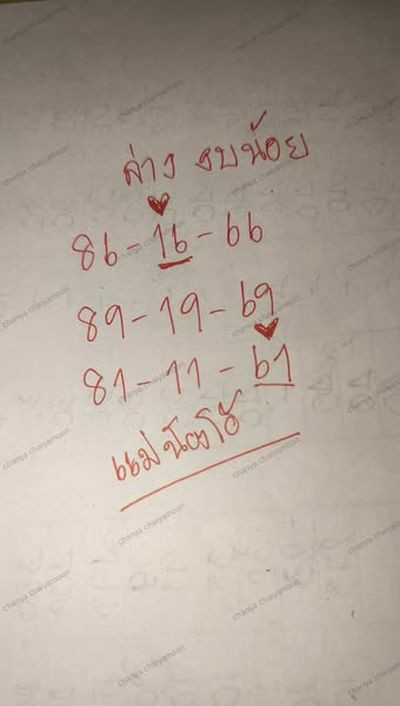 ล่าง งบน้อย
86-16-66
89-19-69
81-11-61
แม่น้องโอ้
chanya chaiyamoon